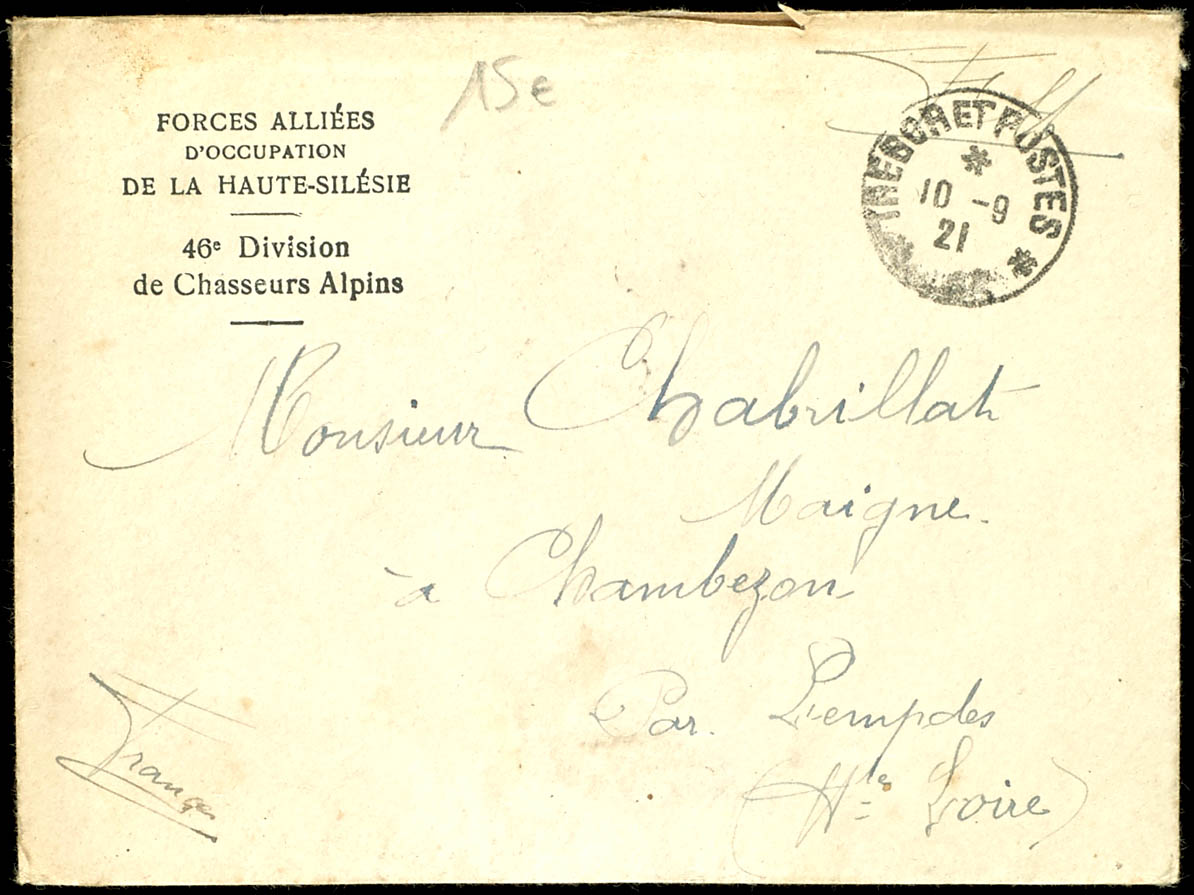 FORCES ALLIÉES
D'OCCUPATION
DE LA HAUTE-SILÉSIE
46e Division
de Chasseurs Alpins
15e
TRESOR ET POSTES
10 -9
21
Monsieur Chabrillat
Maigne
à Chambezon
Par. Lempdes
(Hte Loire)
France